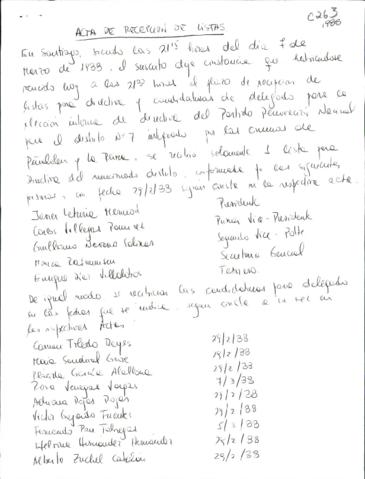 C263
1988
ACTA DE RECEPCION DE LISTAS
En Santiago, siendo las 21:15 horas del día 7 de
Marzo de 1988, el suscrito deja constancia que habiéndose
vencido hoy a las 21:00 horas el plazo de recepción de
listas para directiva y candidaturas de delegado para la
elección interna de directiva del Partido Renovación Nacional
para el distrito Nº 7 integrado por las comunas de
Peñalolen y La Reina, se recibió solamente 1 lista para
Directiva del mencionado distrito, conformada por las siguientes
personas, con fecha 29/2/88 según consta en la respectiva acta.
Javier Leturia Mermod Presidente
Carlos Villegas Primer Vice-Presidente
Guillermo Moreno Segundo Vice-Pdte
Secretario General
Enrique Diaz Villalobos Tesorero.
De igual modo se recibieron las candidaturas para delegados
en las fechas que se indica, según consta a su vez en
las respectivas Actas:
Carmen Toledo Reyes 29/2/88
Maria Sandoval 29/2/88
Garcia Orellana 29/2/88
Rosa Venegas Vargas 7/3/88
Adriana Rojas Rojas 29/2/88
Victor Gajardo Fuentes 29/2/88
Fernando 5/3/88
Hernandez Hernandez 29/2/88
Alberto Zuchel 29/2/88